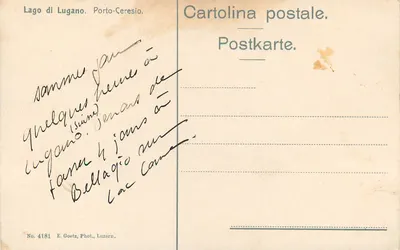 Lago di Lugano. Porto-Ceresio.
Cartolina postale.
Postkarte.
sommes pour
quelques heures à
(suisse)
Lugano. Venons de
passer 4 jours à
Bellagio sur
Lac Come.
No. 4181 E. Goetz, Phot., Luzern.